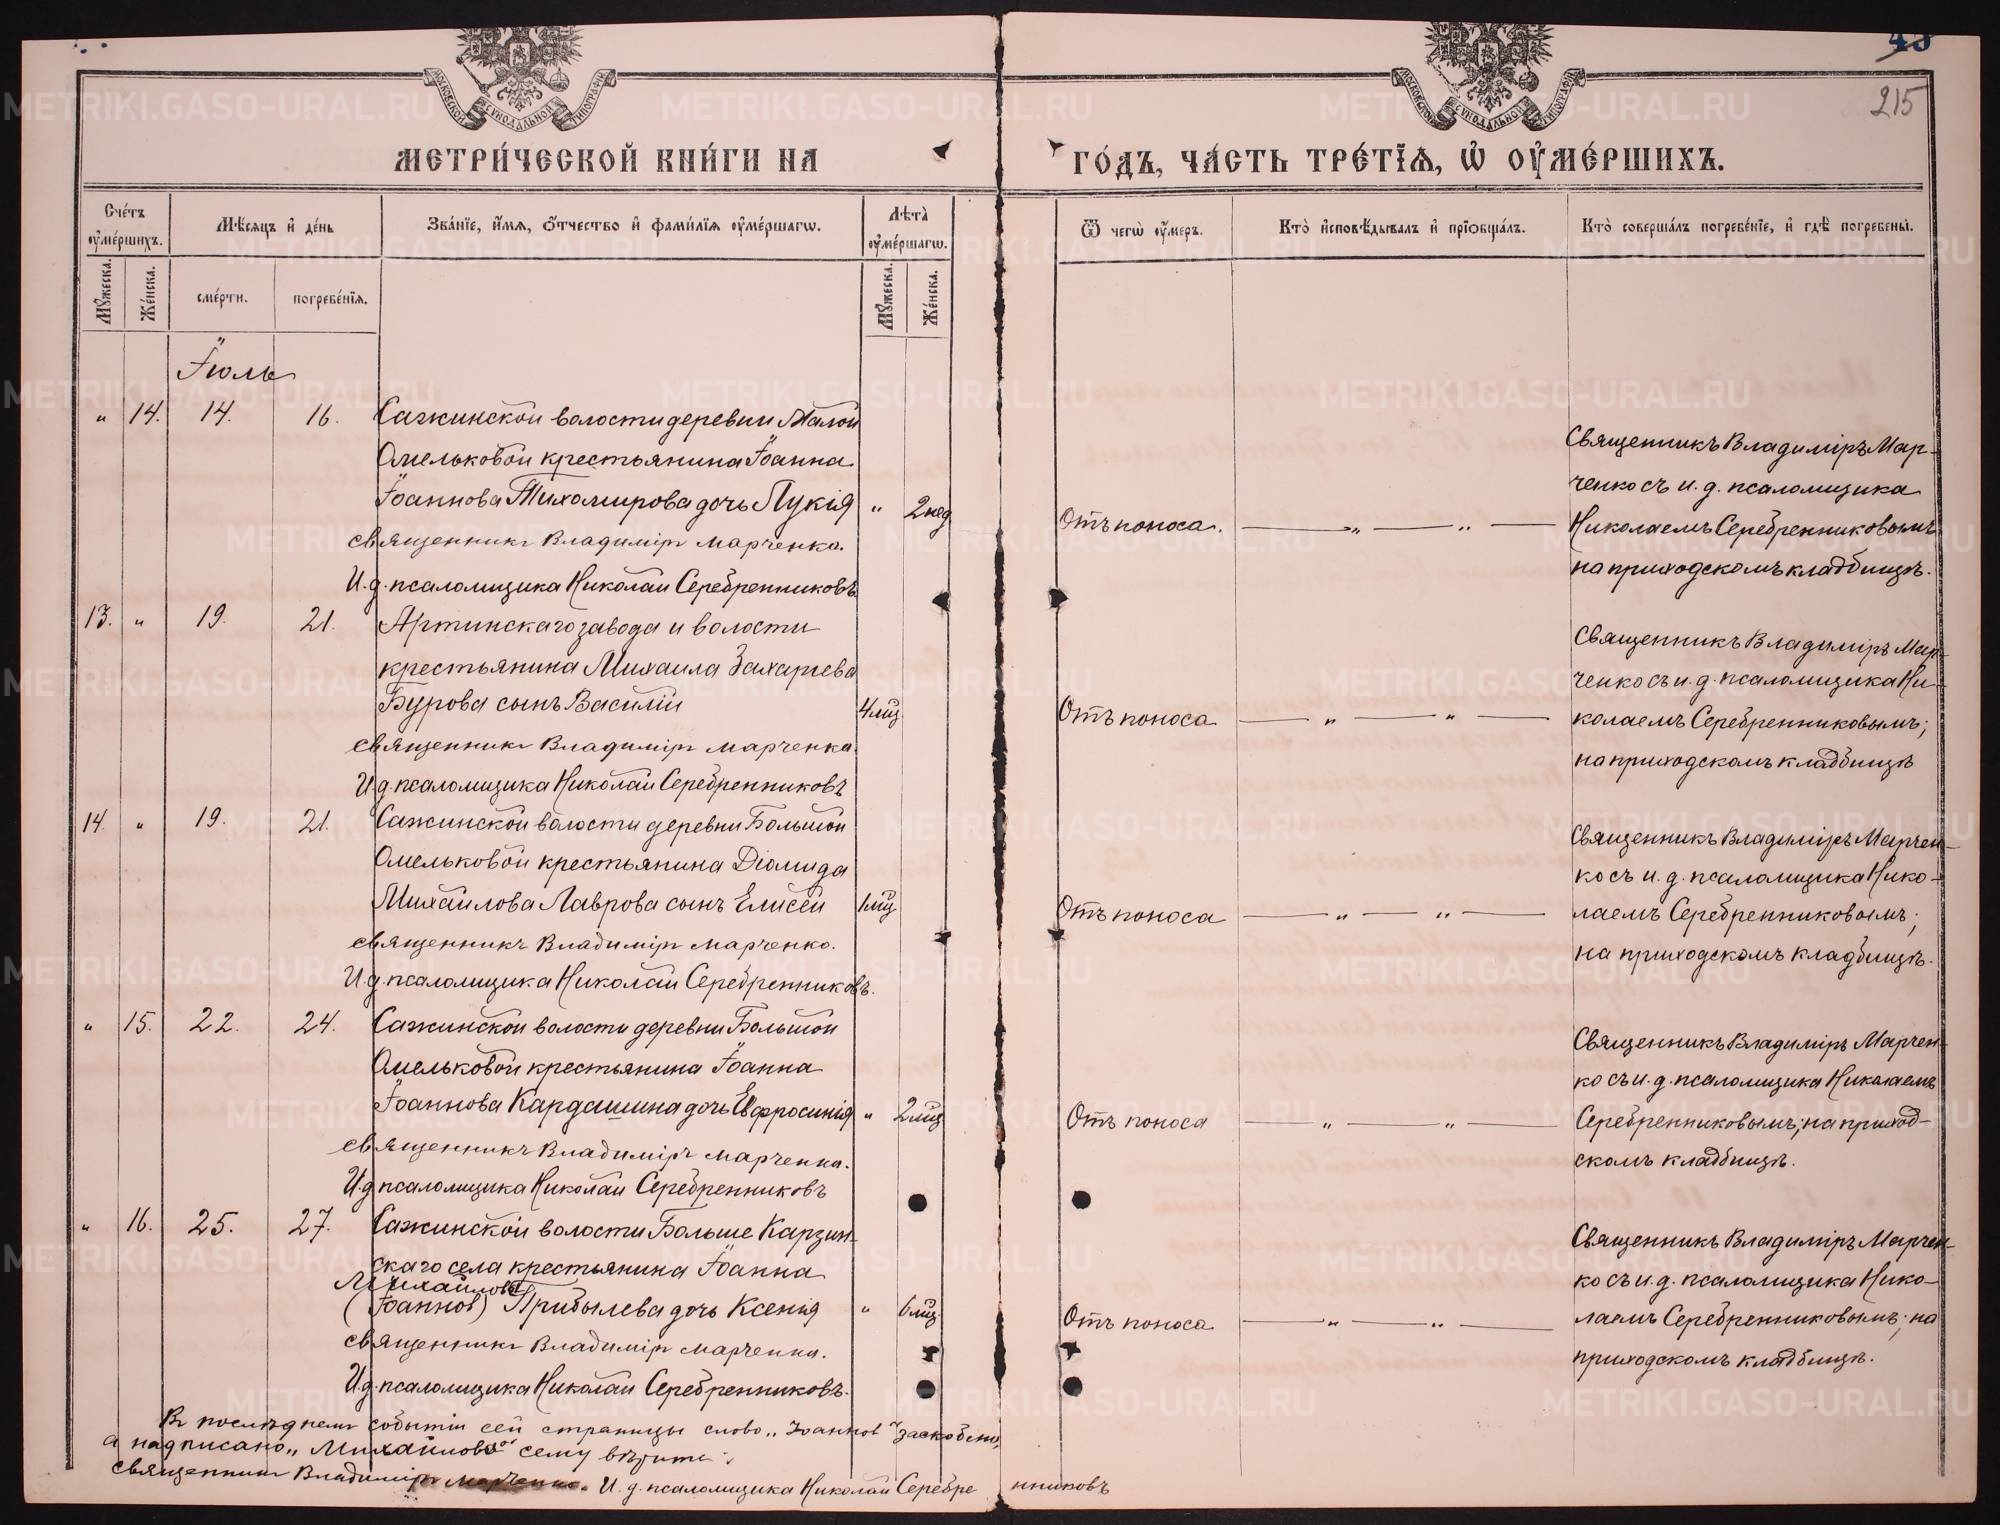 45
215
МОСКОВСКОЙ СѴНОДАЛЬНОЙ ТИПОГРАФІИ
МОСКОВСКОЙ СѴНОДАЛЬНОЙ ТИПОГРАФІИ
МЕТРИ́ЧЕСКОЙ КНИ́ГИ НА
ГО́ДЪ, ЧА́СТЬ ТРЕ́ТІЯ, Ѡ ОУМЕ́РШИХЪ.
Сче́тъ оуме́ршихъ.
Мѣсяцъ и де́нь
Зва́ніе, и́мя, о́тчество и фами́лія оуме́ршагѡ.
Лѣта̀ оуме́ршагѡ.
Ѿ чегѡ̀ оу́меръ.
Кто̀ исповѣ́дывалъ и пріобща́лъ.
Кто̀ соверша́лъ погребе́ніе, и гдѣ̀ погребены̀.
Мужеска. Же́нска. сме́рти. погребе́нія. Мужеска. Же́нска.
Іюль
" 14. 14. 16. Сажинской волости деревни Малой
Омельковой крестьянина Іоанна
Іоаннова Тихомирова дочь Лукія " 2 нед
священникъ Владиміръ Марченко.
И. д. псаломщика Николай Серебренниковъ
Отъ поноса. — " — " —
Священникъ Владиміръ Мар-
ченко съ и. д. псаломщика
Николаемъ Серебренниковымъ
на приходскомъ кладбищѣ.
13. " 19. 21. Артинскаго завода и волости
крестьянина Михаила Захарьева
Бурова сынъ Василій 4 мц
священникъ Владиміръ Марченко.
И. д. псаломщика Николай Серебренниковъ
Отъ поноса — " — " —
Священникъ Владиміръ Мар-
ченко съ и. д. псаломщика Ни-
колаемъ Серебренниковымъ;
на приходскомъ кладбищѣ
14. " 19. 21. Сажинской волости деревни Большой
Омельковой крестьянина Діомида
Михайлова Лаврова сынъ Елисей 1 мц
священникъ Владиміръ Марченко.
И. д. псаломщика Николай Серебренниковъ.
Отъ поноса — " — " —
Священникъ Владиміръ Марчен-
ко съ и. д. псаломщика Нико-
лаемъ Серебренниковымъ;
на приходскомъ кладбищѣ.
" 15. 22. 24. Сажинской волости деревни Большой
Омельковой крестьянина Іоанна
Іоаннова Кардашина дочь Евфросинія " 2 мц
священникъ Владиміръ Марченко.
И. д. псаломщика Николай Серебренниковъ
Отъ поноса — " — " —
Священникъ Владиміръ Марчен-
ко съ и. д. псаломщика Николаемъ
Серебренниковымъ; на приход-
скомъ кладбищѣ.
" 16. 25. 27. Сажинской волости Больше Карзин-
скаго села крестьянина Іоанна
Михайлова
(Іоаннов) Прибылева дочь Ксенія " 6 мц
священникъ Владиміръ Марченко.
И. д. псаломщика Николай Серебренниковъ.
Отъ поноса — " — " —
Священникъ Владиміръ Марчен-
ко съ и. д. псаломщика Нико-
лаемъ Серебренниковымъ; на
приходскомъ кладбищѣ.
Въ послѣднемъ событіи сей страницы слово „Іоаннов" заскоблено,
а надписано „Михайлова" сему вѣрить:
священникъ Владиміръ Марченко. И. д. псаломщика Николай Серебренниковъ
METRIKI.GASO-URAL.RU